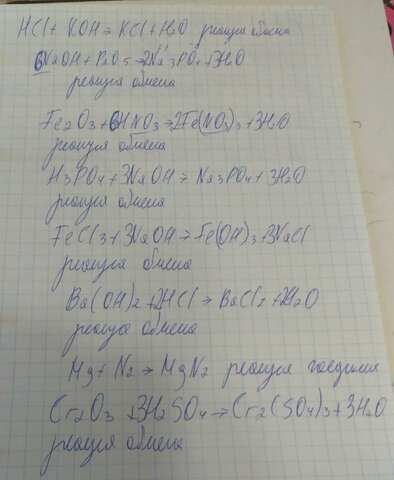 HCl + KOH = KCl + H2O реакция обмена
6NaOH + P2O5 → 2Na3PO4 + 3H2O
реакция обмена
Fe2O3 + 6HNO3 → 2Fe(NO3)3 + 3H2O
реакция обмена
H3PO4 + 3NaOH → Na3PO4 + 3H2O
реакция обмена
FeCl3 + 3NaOH → Fe(OH)3 + 3NaCl
реакция обмена
Ba(OH)2 + 2HCl → BaCl2 + 2H2O
реакция обмена
Mg + N2 → MgN2 реакция соединия
Cr2O3 + 3H2SO4 → Cr2(SO4)3 + 3H2O
реакция обмена